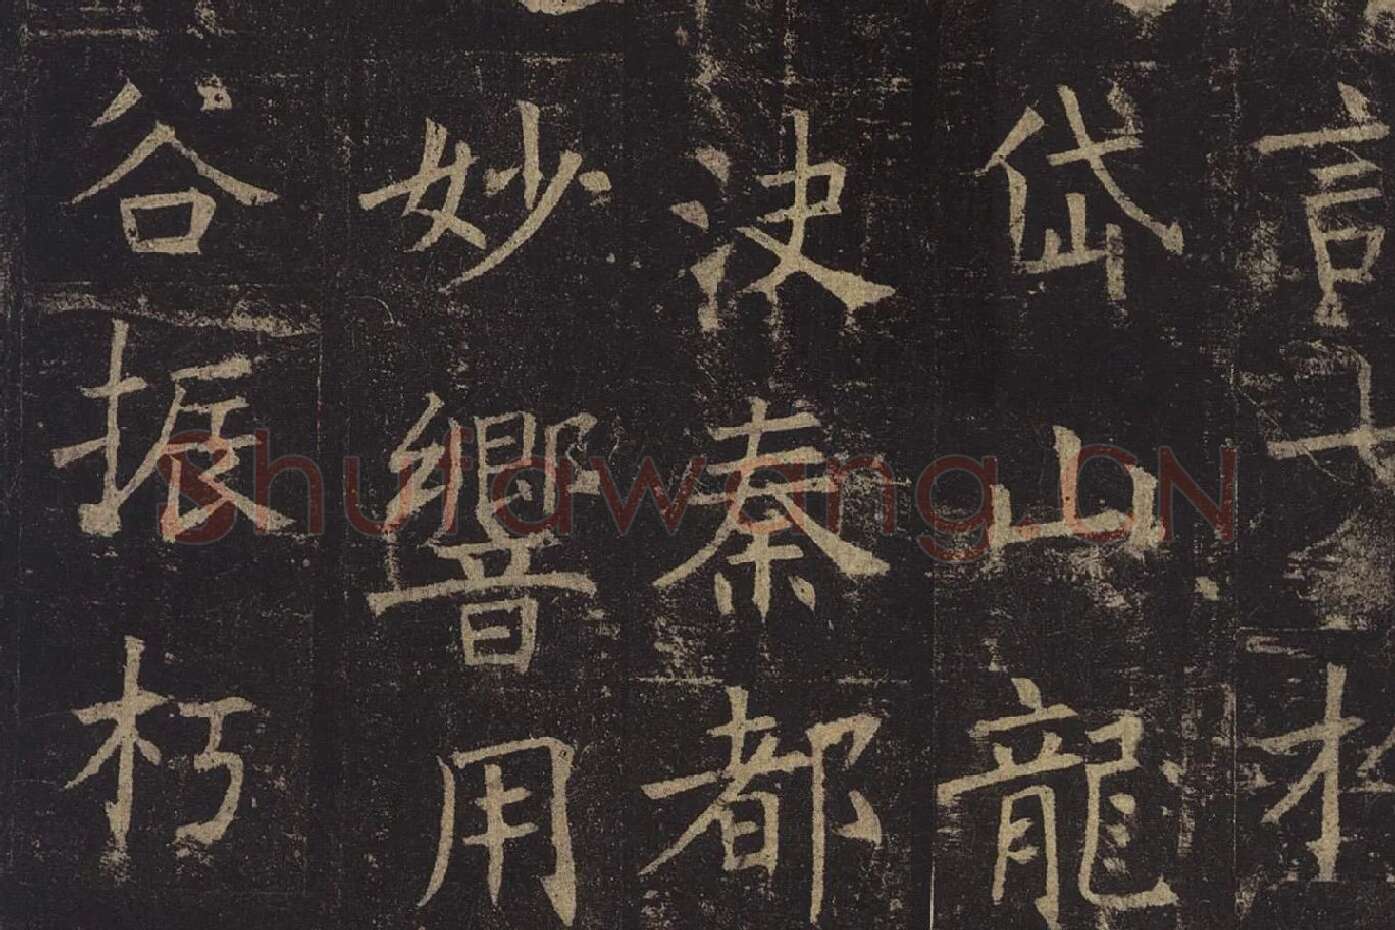 言十
岱山龍
決秦都
妙響用
谷振朽
Shufawang.CN